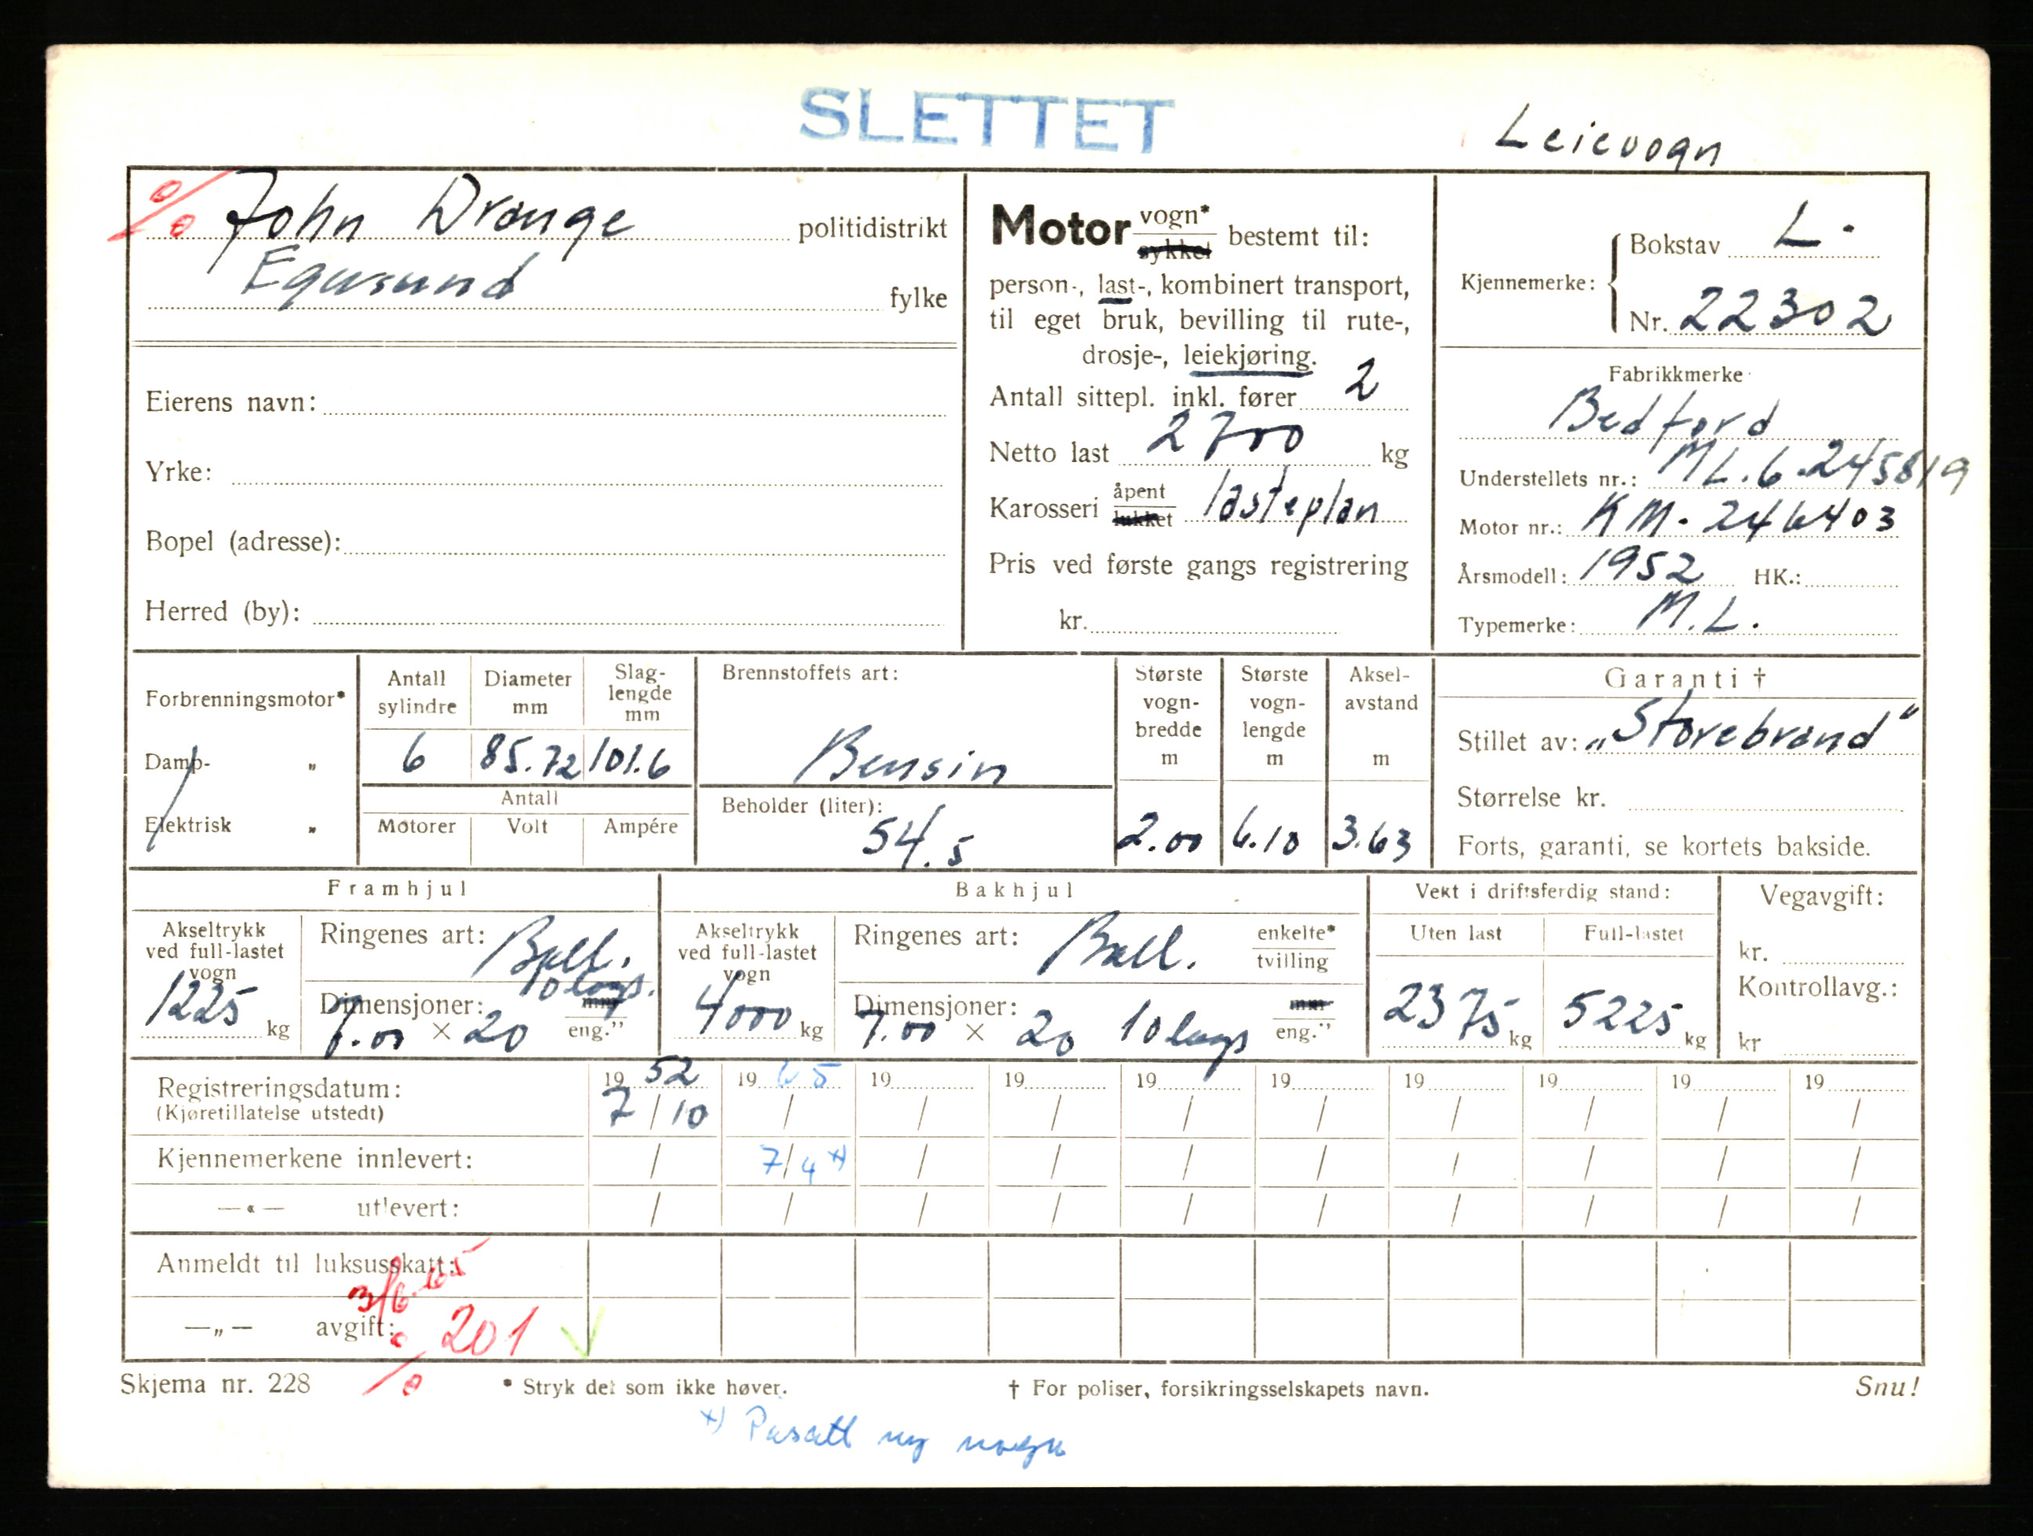 SLETTET
Leievogn
% John Drange politidistrikt
Egersund fylke
Eierens navn:
Yrke:
Bopel (adresse):
Herred (by):
Motor vogn* sykkel bestemt til:
person-, last-, kombinert transport,
til eget bruk, bevilling til rute-,
drosje-, leiekjøring.
Antall sittepl. inkl. fører 2
Netto last 2700 kg
Karosseri åpent lukket lasteplan
Pris ved første gangs registrering
kr.
Kjennemerke: Bokstav L.
Nr. 22302
Fabrikkmerke
Bedford
Understellets nr.: ML.6.245819
Motor nr.: KM. 246403
Årsmodell: 1952 HK.:
Typemerke: M.L.
Forbrenningsmotor*
Damp- „
Elektrisk „
Antall sylindre
Diameter mm
Slag-lengde mm
6 85.72 101.6
Antall
Motorer Volt Ampére
Brennstoffets art:
Bensin
Beholder (liter):
54.5
Største vogn-bredde m
2.00
Største vogn-lengde m
6.10
Aksel-avstand m
3.63
Garanti †
Stillet av: „Storebrand"
Størrelse kr.
Forts, garanti, se kortets bakside.
Framhjul
Akseltrykk ved full-lastet vogn
1225 kg
Ringenes art: Ball.
10 lags.
Dimensjoner: mm
7.00 × 20 eng."
Bakhjul
Akseltrykk ved full-lastet vogn
4000 kg
Ringenes art: Ball. enkelte* tvilling
Dimensjoner: mm
7.00 × 20 10 lags eng."
Vekt i driftsferdig stand:
Uten last Full-lastet
2375 kg 5225 kg
Vegavgift:
kr.
Kontrollavg.:
kr
Registreringsdatum: 19 52 19 65 19 19 19 19 19 19 19 19
(Kjøretillatelse utstedt) 7/10 / / / / / / / / /
Kjennemerkene innlevert: / 7/4 *) / / / / / / / /
—«— utlevert: / / / / / / / / / /
Anmeldt til luksusskatt:
3/6.65
—„— avgift: % 201
Skjema nr. 228 * Stryk det som ikke høver. † For poliser, forsikringsselskapets navn. Snu!
*) Påsatt ny vogn